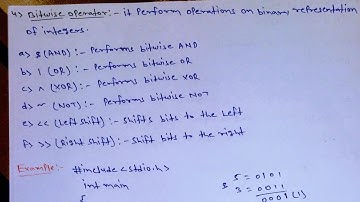 4) Bitwise operator:- it Perform operations on binary representation
of integers.
a) & (AND):- Performs bitwise AND
b) | (OR):- Performs bitwise OR
c) ^ (XOR):- Performs bitwise XOR
d) ~ (NOT):- Performs bitwise NOT
e) << (Left shift):- Shifts bits to the Left
f) >> (Right shift):- Shift bits to the right
Example:- #include<stdio.h>
int main
5 = 0101
& 3 = 0011
0001 (1)